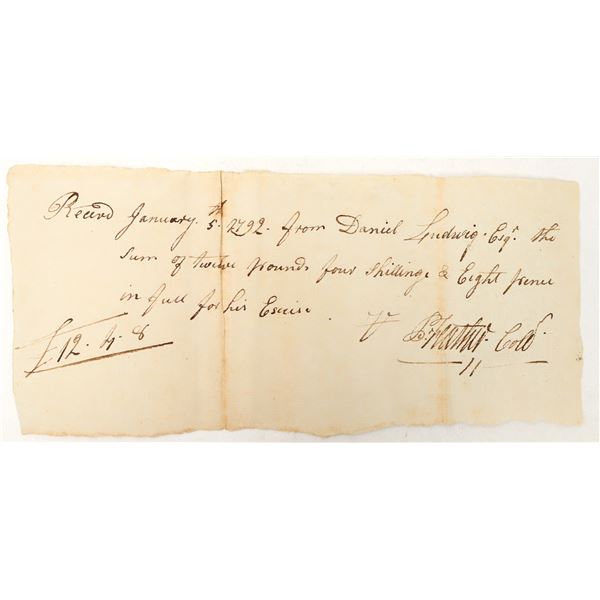 Receivd January 5th 1792 from Daniel Ludwig Esqr. the
Sum of twelve pounds four Shillings & Eight pence
in full for his Excise.
£12. 4. 8 Pr Collr.